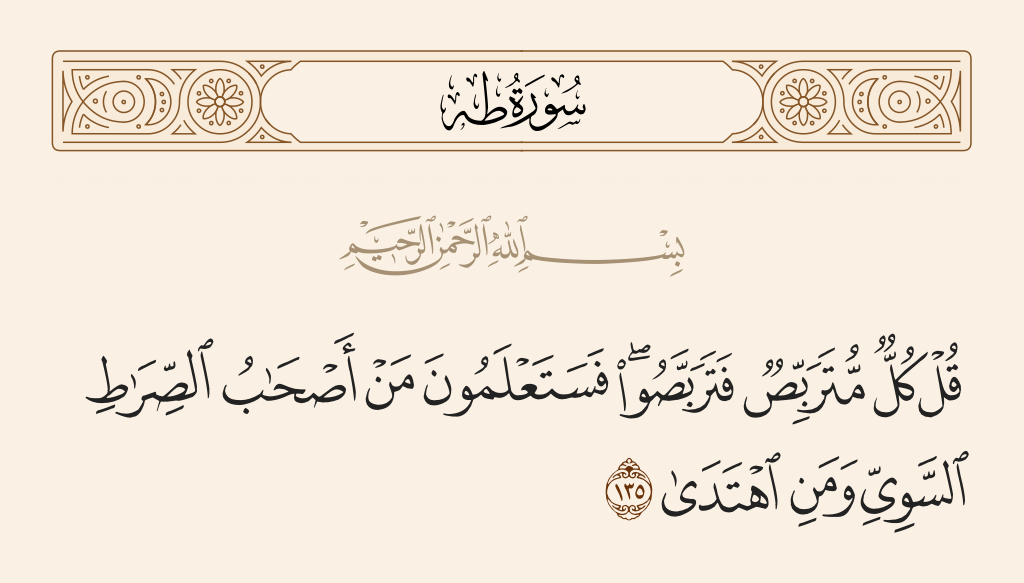 سُورَةُ طه
بِسْمِ ٱللَّهِ ٱلرَّحْمَٰنِ ٱلرَّحِيمِ
قُلْ كُلٌّ مُّتَرَبِّصٌ فَتَرَبَّصُوا۟ ۖ فَسَتَعْلَمُونَ مَنْ أَصْحَٰبُ ٱلصِّرَٰطِ
ٱلسَّوِىِّ وَمَنِ ٱهْتَدَىٰ ١٣٥